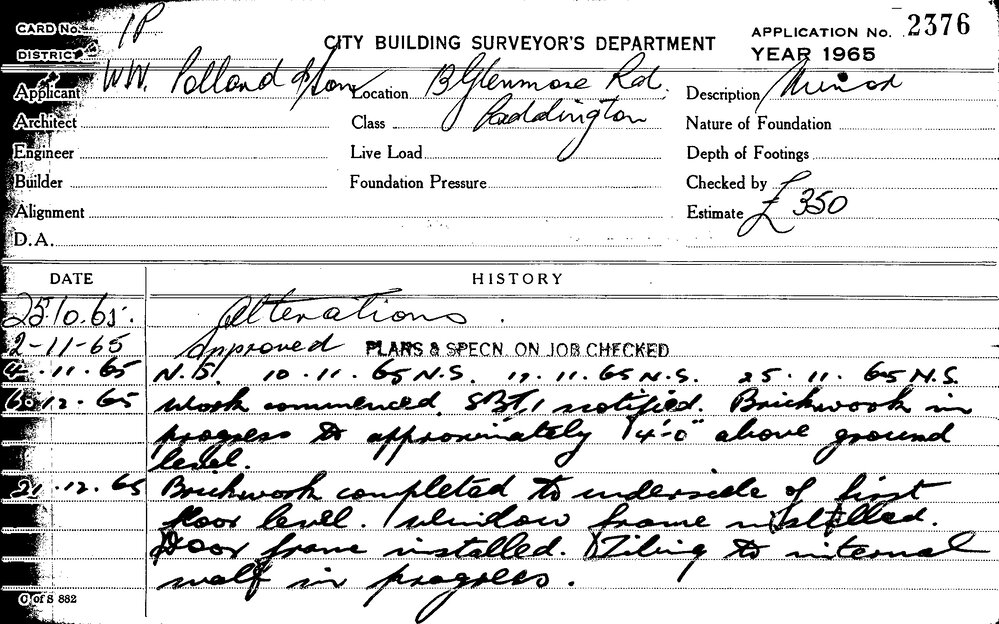 CARD No. 1P
CITY BUILDING SURVEYOR'S DEPARTMENT
APPLICATION No. 2376
DISTRICT
YEAR 1965
Applicant W.W. Polland & Son
Location Glenmore Rd.
Description Minor
Architect
Class Paddington
Nature of Foundation
Engineer
Live Load
Depth of Footings
Builder
Foundation Pressure
Checked by
Alignment
Estimate £350
D.A.
DATE HISTORY
25.10.65. Alterations.
2-11-65 Approved PLANS & SPECN. ON JOB CHECKED
4.11.65 N.S. 10.11.65 N.S. 17.11.65 N.S. 25.11.65 N.S.
6.12.65 Work commenced. notified. Brickwork in
progress to approximately 4'-0" above ground
level.
21.12.65 Brickwork completed to underside of first
floor level. Window frame installed.
Door frame installed. Tiling to internal
wall in progress.
C of S 882